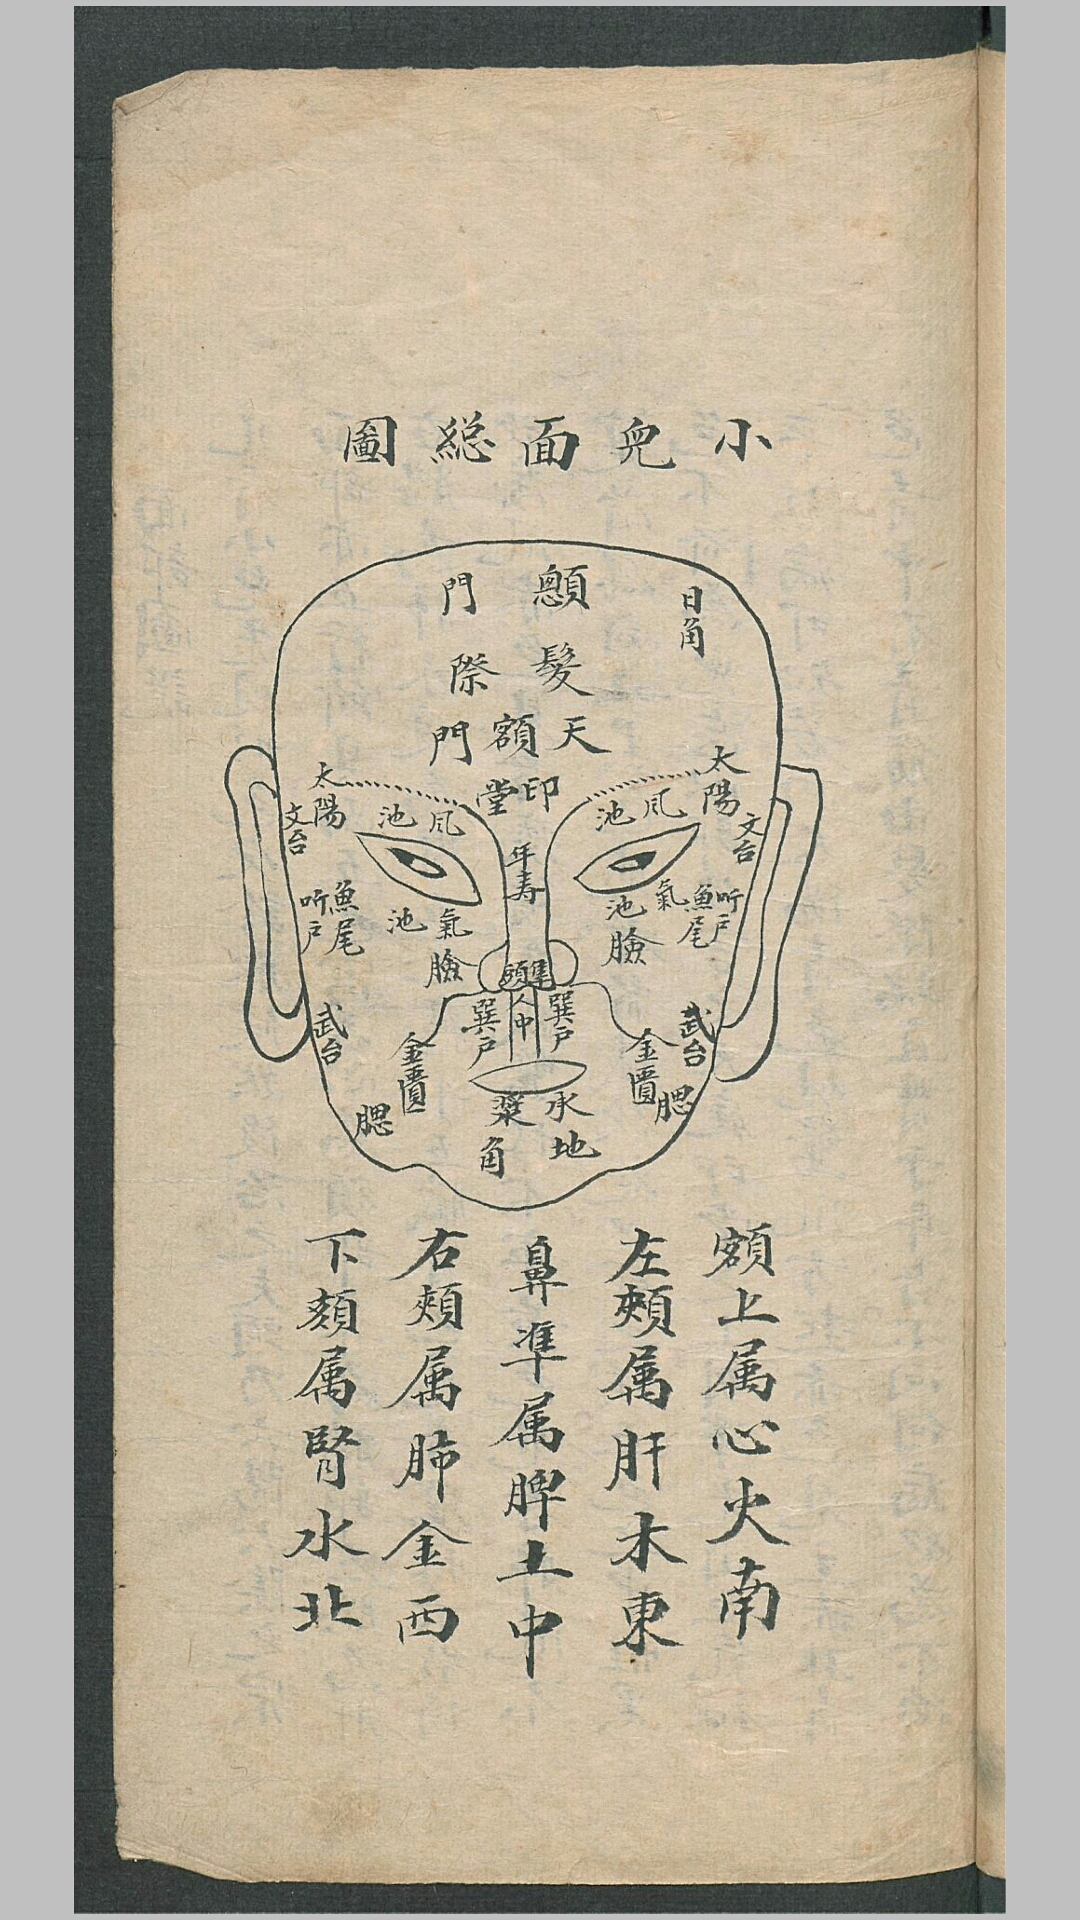 小兒面総圖
顖門
日角
髮際
天額門
印堂
太陽
太陽
風池
風池
文台
文台
年壽
氣池
氣池
魚尾
魚尾
听戶
听戶
臉
臉
準頭
人中
巽戶
巽戶
武台
武台
金匱
金匱
腮
腮
承漿
地角
額上属心火南
左頰属肝木東
鼻準属脾土中
右頰属肺金西
下頦属腎水北